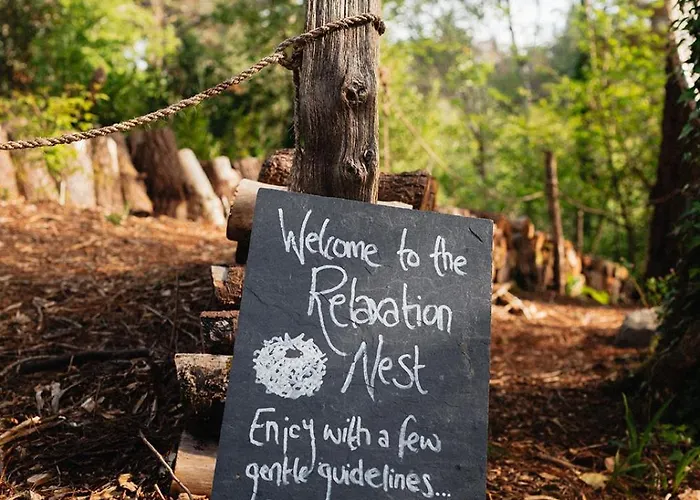 Welcome to the
Relaxation
Nest
Enjoy with a few
gentle guidelines...